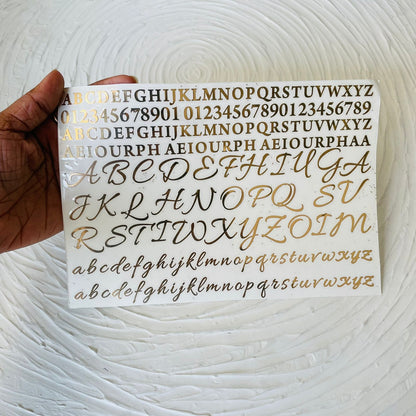 ABCDEFGHIJKLMNOPQRSTUVWXYZ
012345678901 012345678901 0123456789
ABCDEFGHIJKLMNOPQRSTUVWXYZ
AEIOURPH AEIOURPH AEIOURPHAA
ABCDEFGHIUGA
JKLHNOPQ SV
RSTIWXYZOIM
abcdefghijklmnopqrstuvwxyz
abcdefghijklmnopqrstuvwxyz